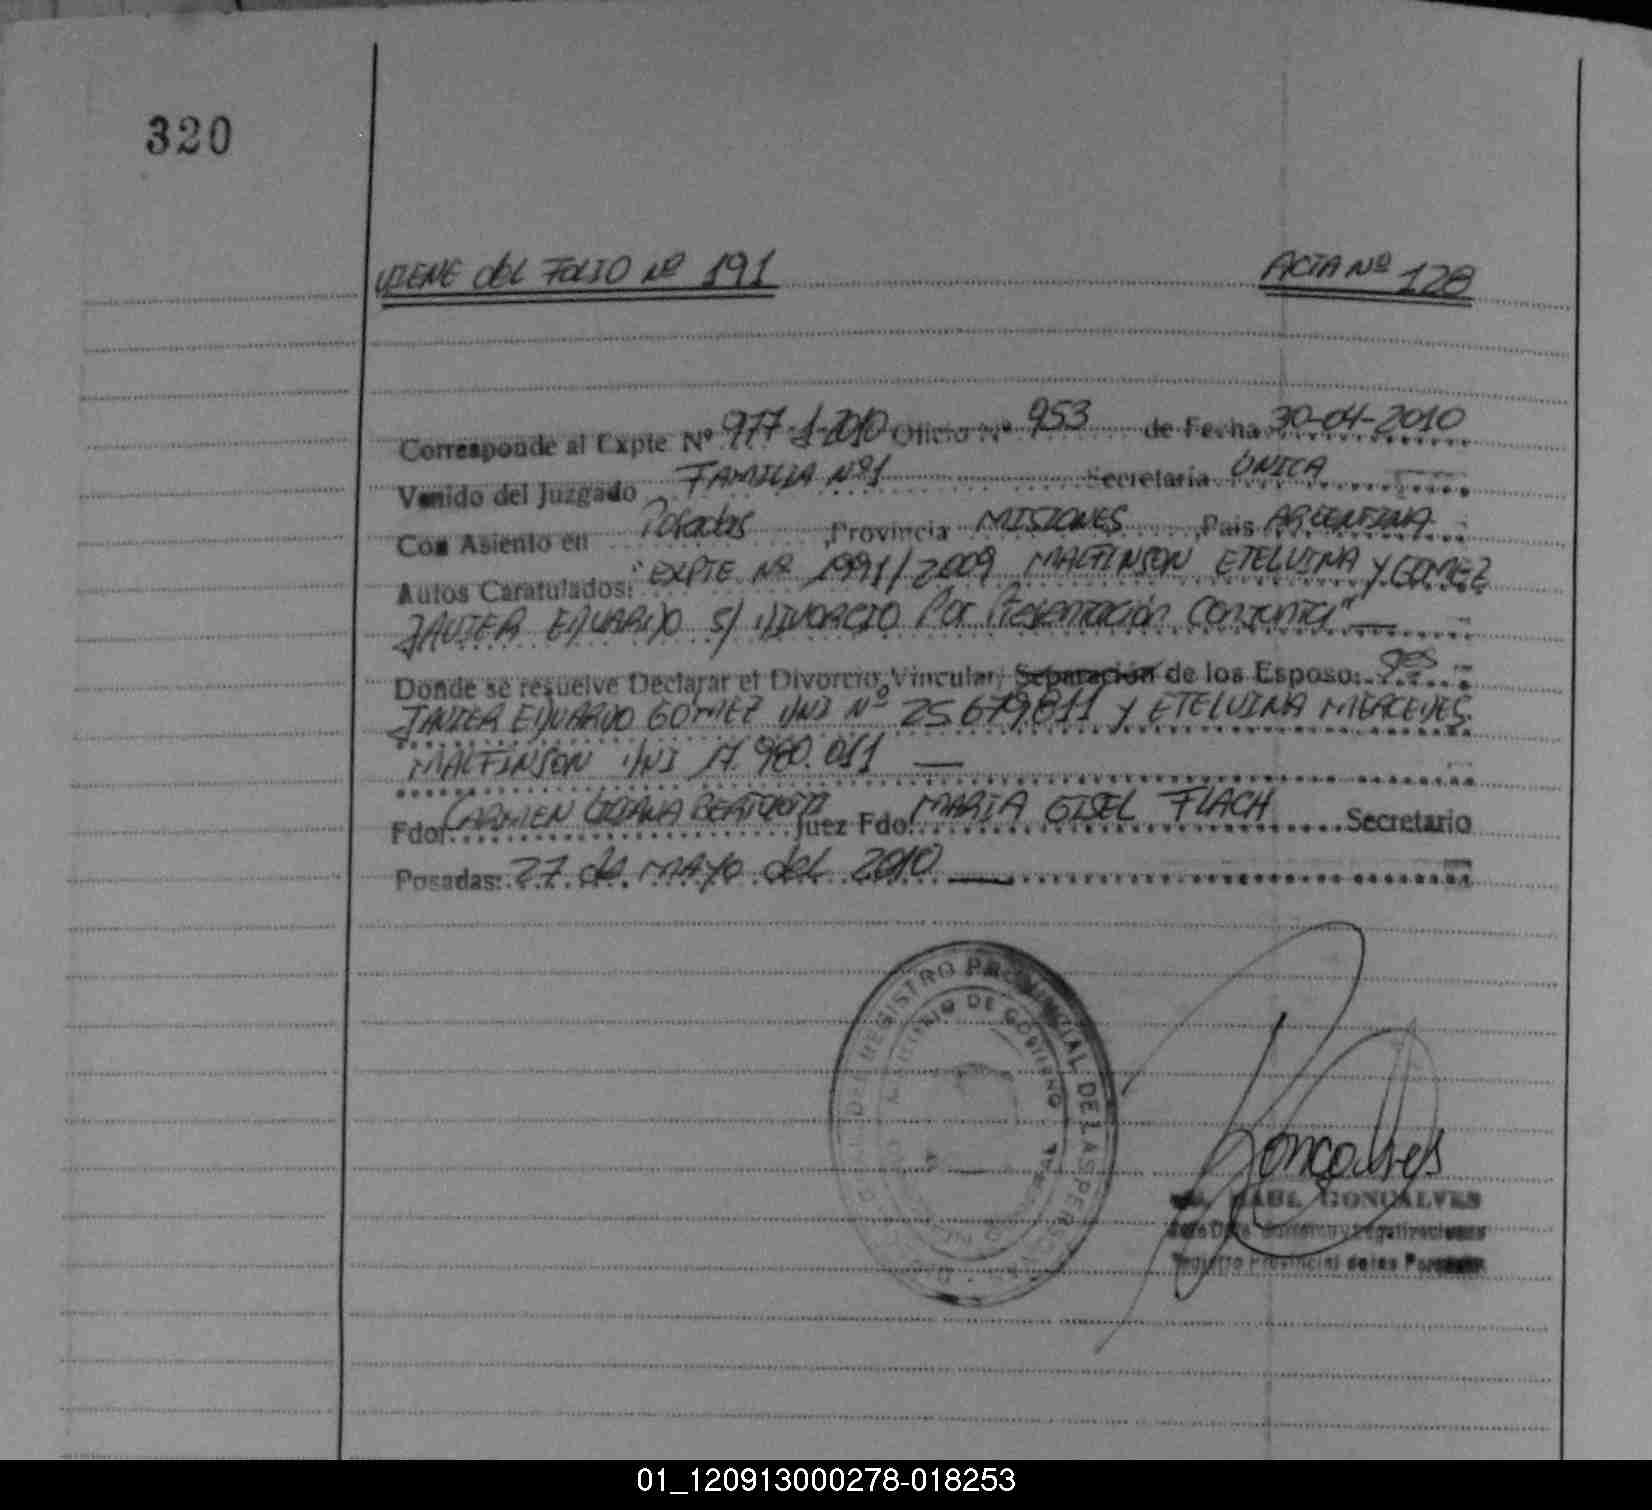 320
VIENE del FOLIO Nº 191 ACTA Nº 128
Corresponde al Expte Nº 977-J-2010 Oficio Nº 953 de Fecha 30-04-2010
Venido del Juzgado FAMILIA Nº1 Secretaria ÚNICA
Con Asiento en Posadas ,Provincia MISIONES ,Pais ARGENTINA
Autos Caratulados: "EXPTE Nº 1991/2009 MALFINSON ETELVINA Y GOMEZ
JAVIER EDUARDO S/ DIVORCIO Por Presentación Conjunta" —
Donde se resuelve Declarar el Divorcio Vincular, Separación de los Esposo: Sres
JAVIER EDUARDO GOMEZ DNI Nº 25679811 Y ETELVINA MERCEDES
MALFINSON DNI 17.980.011 —
Fdo: CARMEN Juez Fdo: MARIA GISEL FLACH Secretario
Posadas: 27 de MAYO del 2010 —
REGISTRO PROVINCIAL DE LAS PERSONAS
MINISTERIO DE GOBIERNO
Goncalves
RAUL GONCALVES
Registro Provincial de las Personas
01_120913000278-018253